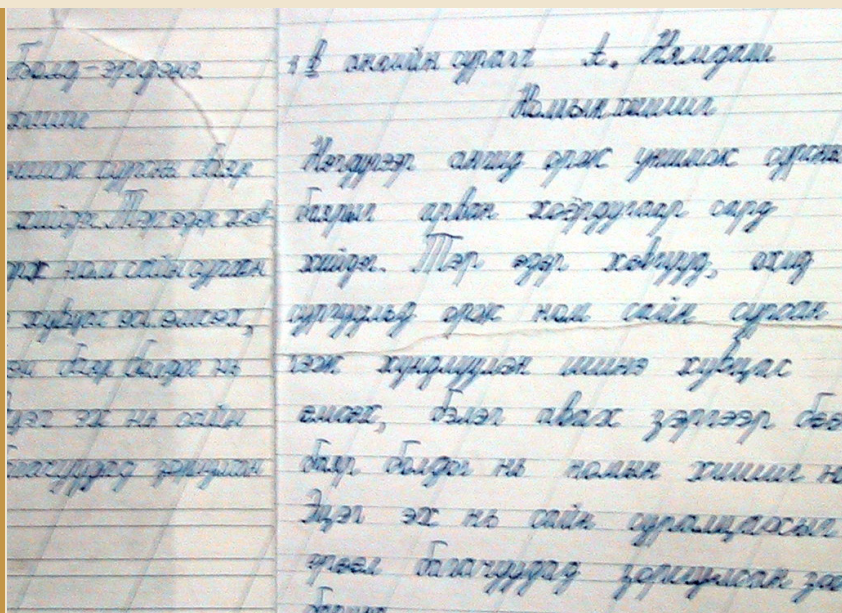 Болд-эрдэнэ
сурсны баяр
хийдэг. Тэр өдөр хөв-
орж ном сайн сурсан
хувцас өмсөх,
баяр болдог нь
эх нь сайн
багачуудад зориулсан
1б ангийн сурагч Нямдаш
Номын хишиг
Нэгдүгээр ангид орж уншиж сурсны
баярыг арван хоёрдугаар сард
хийдэг. Тэр өдөр хөвгүүд, охид
сургуульд орж ном сайн сурсан
гэж хүндлүүлэн шинэ хувцас
өмсөх, бэлэг авах зэргээр бөө
баяр болдог нь номын хишиг
Эцэг эх нь сайн
багачуудад зориулсан